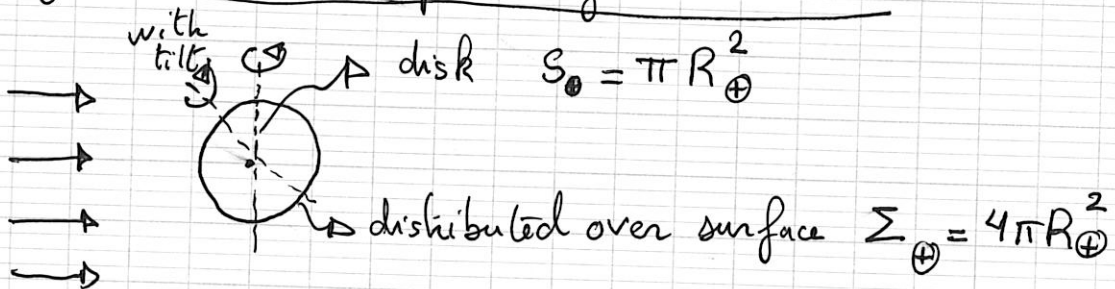 with
tilt
disk S● = πR⊕²
distributed over surface Σ⊕ = 4πR⊕²